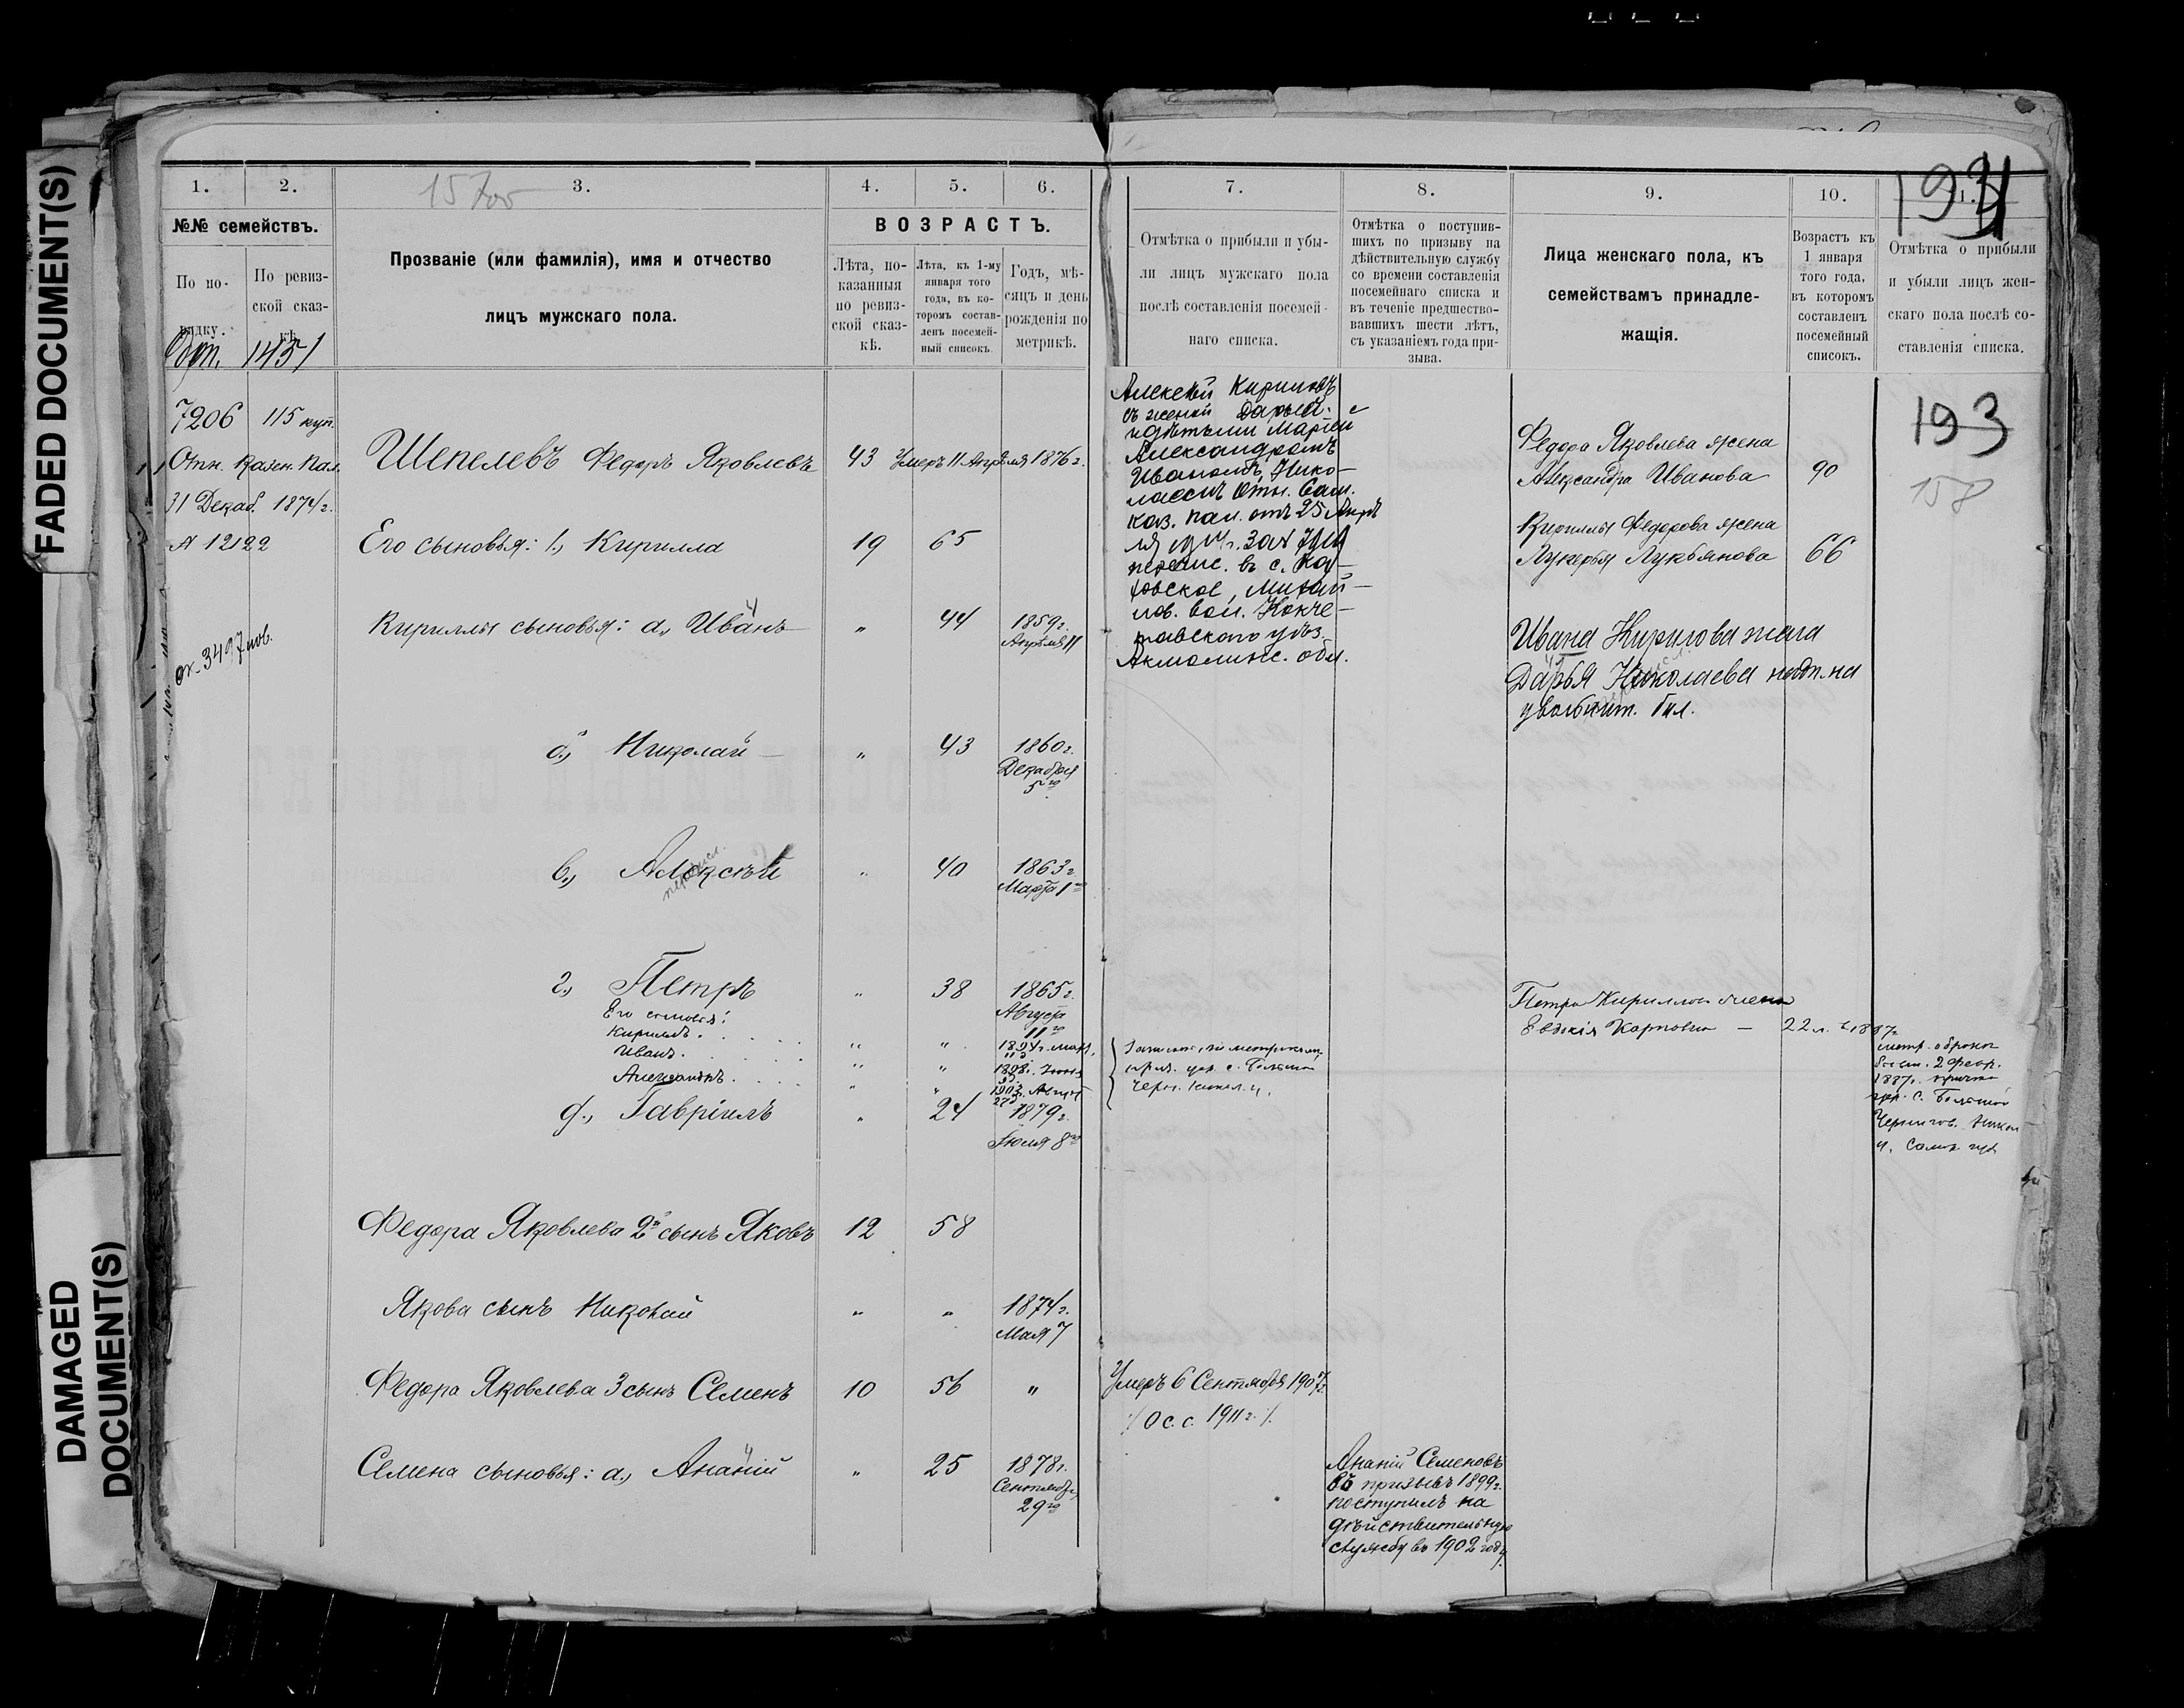 FADED DOCUMENT(S)
DAMAGED
DOCUMENT(S)
1.
2.
3.
4.
5.
6.
1570
№№ семействъ.
Прозваніе (или фамилія), имя и отчество
лицъ мужскаго пола.
ВОЗРАСТЪ.
По по-
рядку.
По ревиз-
ской сказ-
кѣ.
Лѣта, по-
казанныя
по ревиз-
ской сказ-
кѣ.
Лѣта, къ 1-му
января того
года, въ ко-
торомъ состав-
ленъ посемей-
ный списокъ.
Годъ, мѣ-
сяцъ и день
рожденія по
метрикѣ.
1451
7206 115 куп.
Отн. Казен. Пал.
31 Декаб. 1874 г.
№ 12122
3497 нов.
Шепелевъ Федоръ Яковлевъ 43 Умеръ 11 Апрѣля 1876 г.
Его сыновья: 1., Кирилла 19 65
Кириллы сыновья: а., Иванъ 4 „ 44 1859 г.
Апрѣля 11
б., Николай „ 43 1860 г.
Декабря
5го
в., Алексѣй „ 40 1863 г.
перечисл.
Марта 1го
г., Петръ „ 38 1865 г.
Августа
11го
Его сыновья:
Кириллъ. „ „ 1894 г. мар.
Иванъ. „ „ 1898 г.
Александръ. „ „ Август
д., Гавріилъ „ 24 1879 г.
Іюля 8го
Федора Яковлева 2й сынъ Яковъ 12 58
Якова сынъ Николай „ „ 1874 г.
Мая 7
Федора Яковлева 3 сынъ Семенъ 10 56 „
Семена сыновья: а., Ананій 4 „ 25 1878 г.
Сентября
29го
7.
8.
9.
10.
11.
194
Отмѣтка о прибыли и убы-
ли лицъ мужскаго пола
послѣ составленія посемей-
наго списка.
Отмѣтка о поступив-
шихъ по призыву на
дѣйствительную службу
со времени составленія
посемейнаго списка и
въ теченіе предшество-
вавшихъ шести лѣтъ,
съ указаніемъ года при-
зыва.
Лица женскаго пола, къ
семействамъ принадле-
жащія.
Возрастъ къ
1 января
того года,
въ которомъ
составленъ
посемейный
списокъ.
Отмѣтка о прибыли
и убыли лицъ жен-
скаго пола послѣ со-
ставленія списка.
Алексѣй Кириловъ
съ женой Дарьей
и дѣтьми Маріей
Александромъ
Иваномъ, Нико-
лаемъ Отн. Сам.
каз. пал. отъ 25 Апрѣ
ля за №
перечис. въ с. Ка-
товское, Михай-
лов. вол. Кокче-
тавскаго уѣз.
Акмолинс. обл.
Записаны по метрикам
церк. с. Больш
Черн. Никол. у.
Умеръ 6 Сентября 1907 г.
/ О с. с. 1911 г. /.
Ананій Семеновъ
въ призывъ 1899 г.
поступилъ на
дѣйствительную
службу въ 1902 году.
Федора Яковлева жена
Александра Иванова 90
Кириллы Федорова жена
Лукерья Лукьянова 66
Ивана Кирилова жена
Дарья Николаева
увольнит. бил.
Петра Кириллов жена
Евдокія Карповна — 22 л. въ 1887 г.
метр. о брако
2 Февр.
1887 г.
с. Большой
Чернигов. Никол
у. Самар губ
193
158